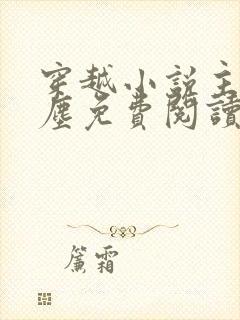 穿越小說主
塵免費閱讀
簾霜